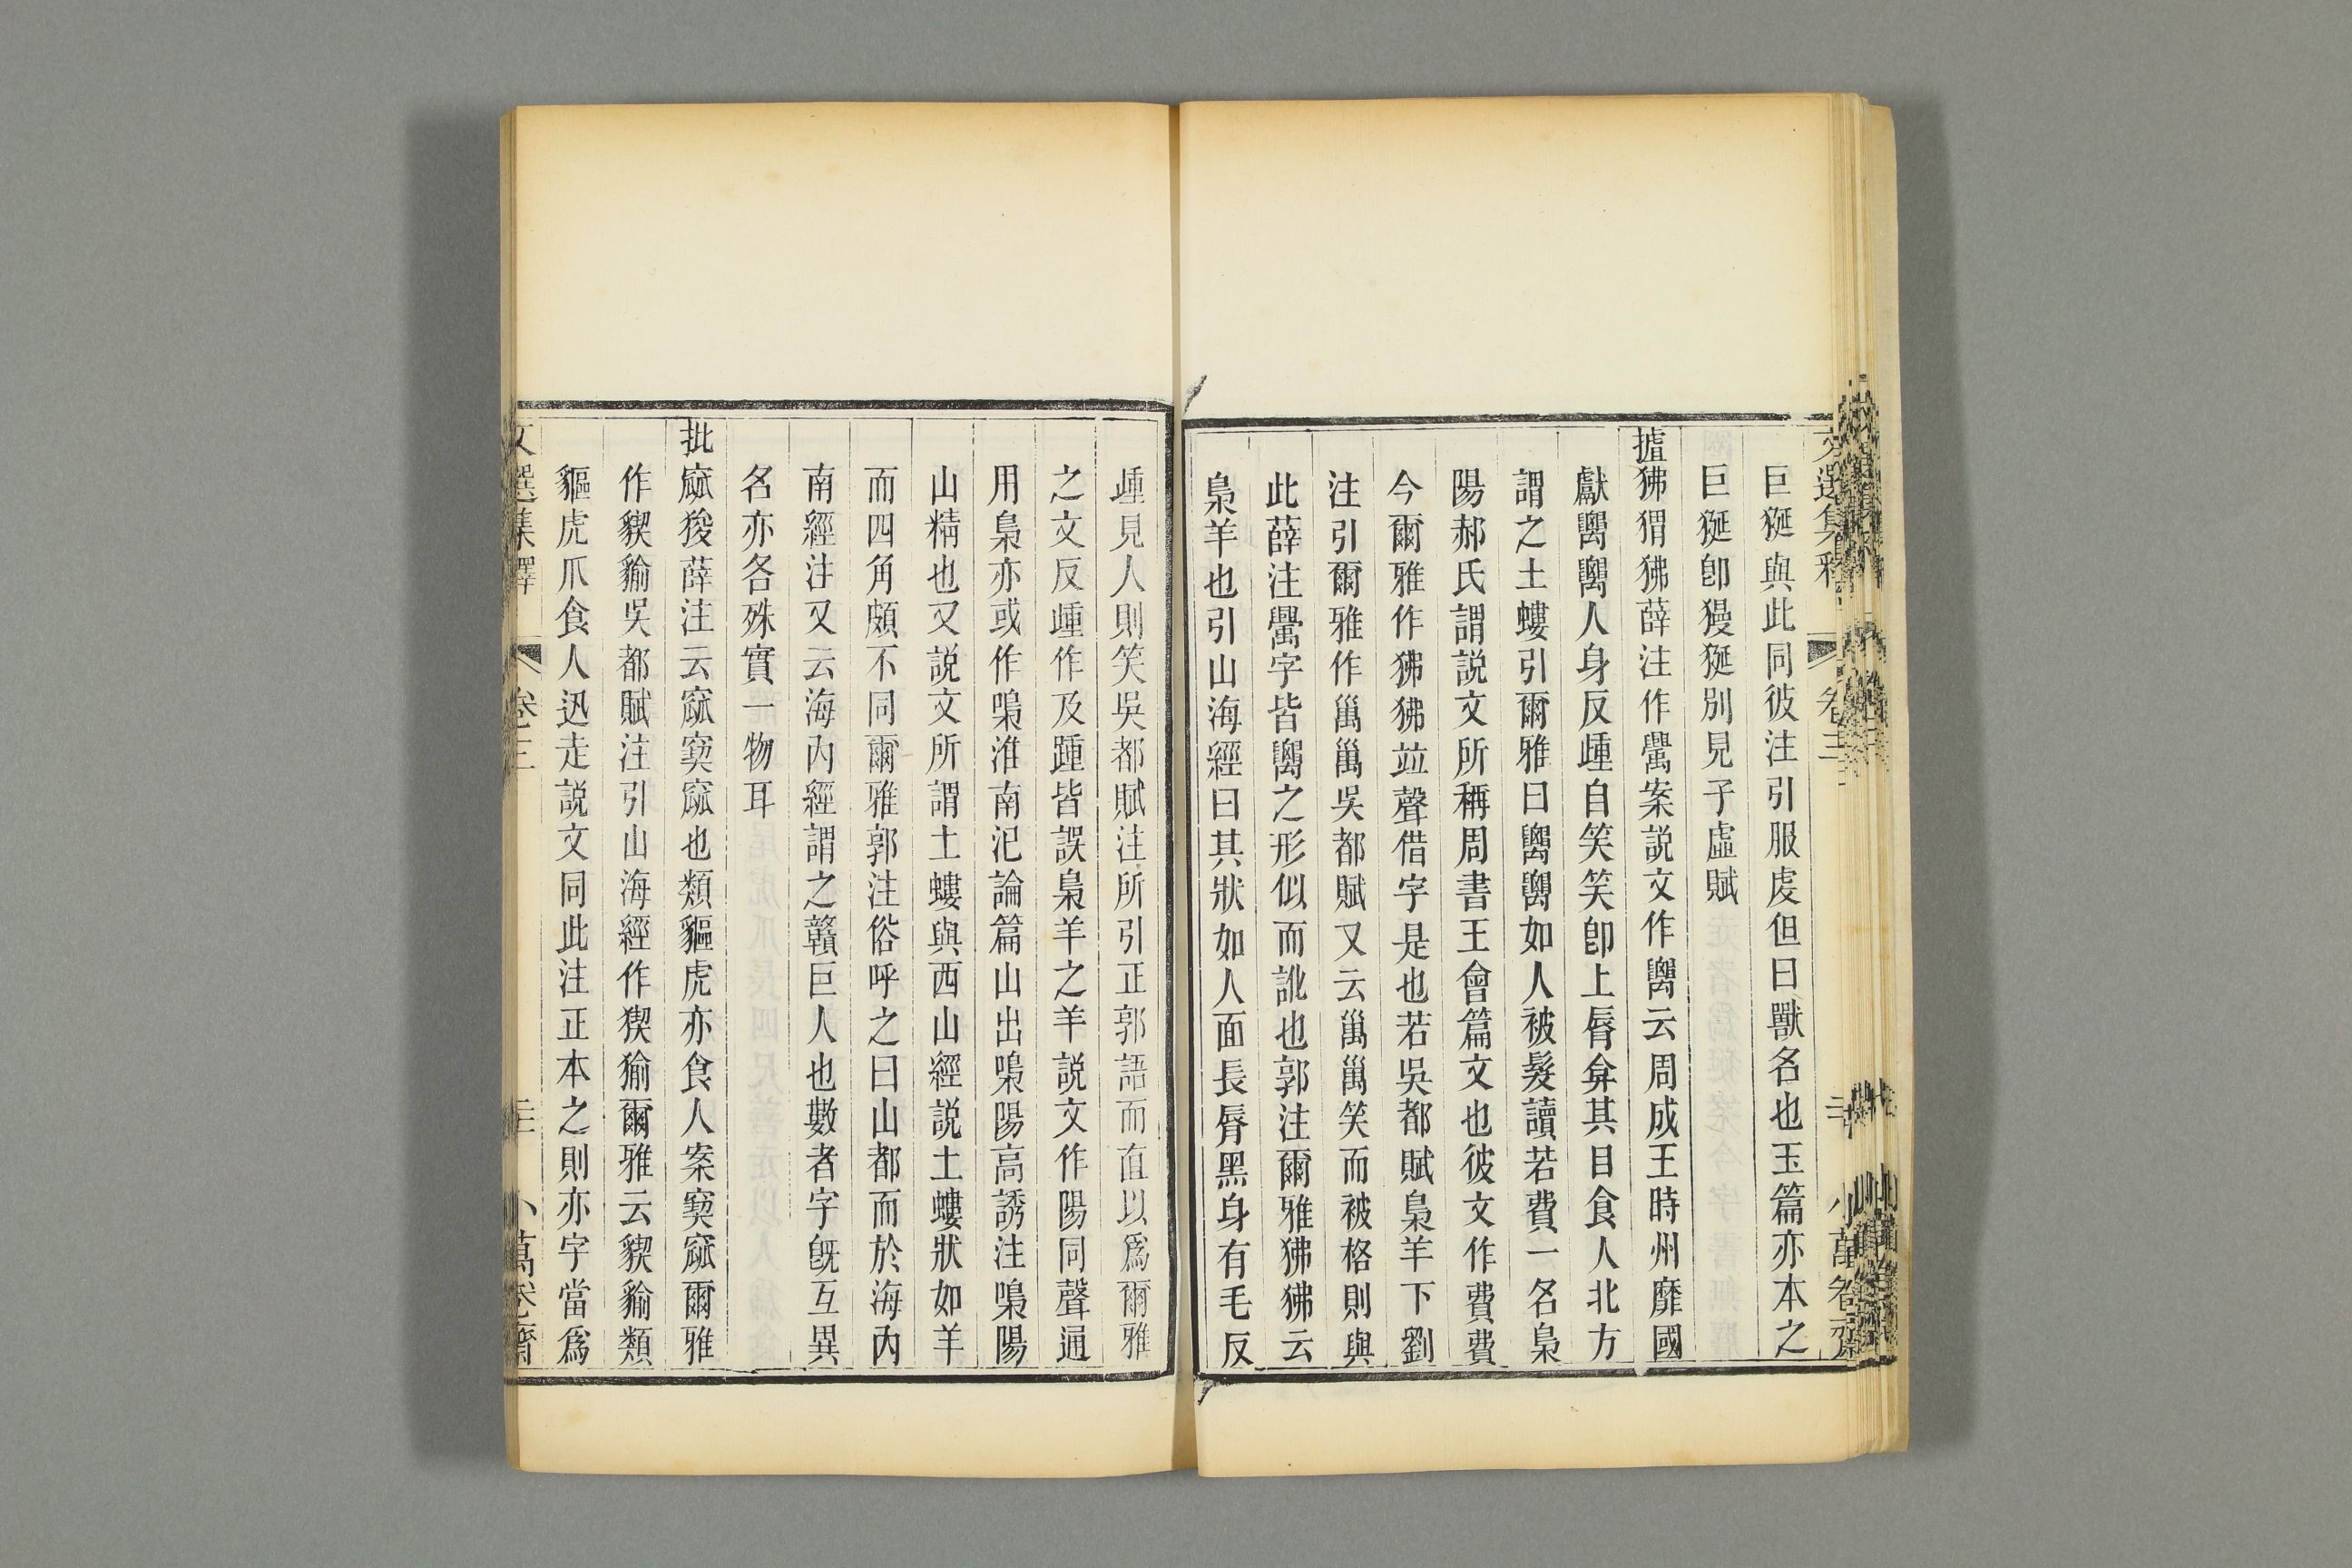 文選集釋 卷三 二十 小萬卷齋
巨狿與此同彼注引服虔但曰獸名也玉篇亦本之
巨狿卽獌狿別見子虛賦
摣狒猬狒薛注作𥝋案說文作𥜿云周成王時州靡國
獻𥜿𥜿人身反踵自笑笑卽上脣弇其目食人北方
謂之土螻引爾雅曰𥜿𥜿如人被髮讀若費一名梟
陽郝氏謂說文所稱周書王會篇文也彼文作費費
今爾雅作狒狒竝聲借字是也若吳都賦梟羊下劉
注引爾雅作𥝋𥝋吳都賦又云𥝋𥝋笑而被格則與
此薛注𥝋字皆𥜿之形似而訛也郭注爾雅狒狒云
梟羊也引山海經曰其狀如人面長脣黑身有毛反
踵見人則笑吳都賦注所引正郭語而直以爲爾雅
之文反踵作及踵皆誤梟羊之羊說文作陽同聲通
用梟亦或作噪淮南氾論篇山出噪陽高誘注噪陽
山精也又說文所謂土螻與西山經說土螻狀如羊
而四角頗不同爾雅郭注俗呼之曰山都而於海內
南經注又云海內經謂之贛巨人也數者字旣互異
名亦各殊實一物耳
批窳狻薛注云窳窫窳也類貙虎亦食人案窫窳爾雅
作猰貐吳都賦注引山海經作猰㺄爾雅云猰貐類
貙虎爪食人迅走說文同此注正本之則亦字當爲
文選集釋 卷三 小萬卷齋